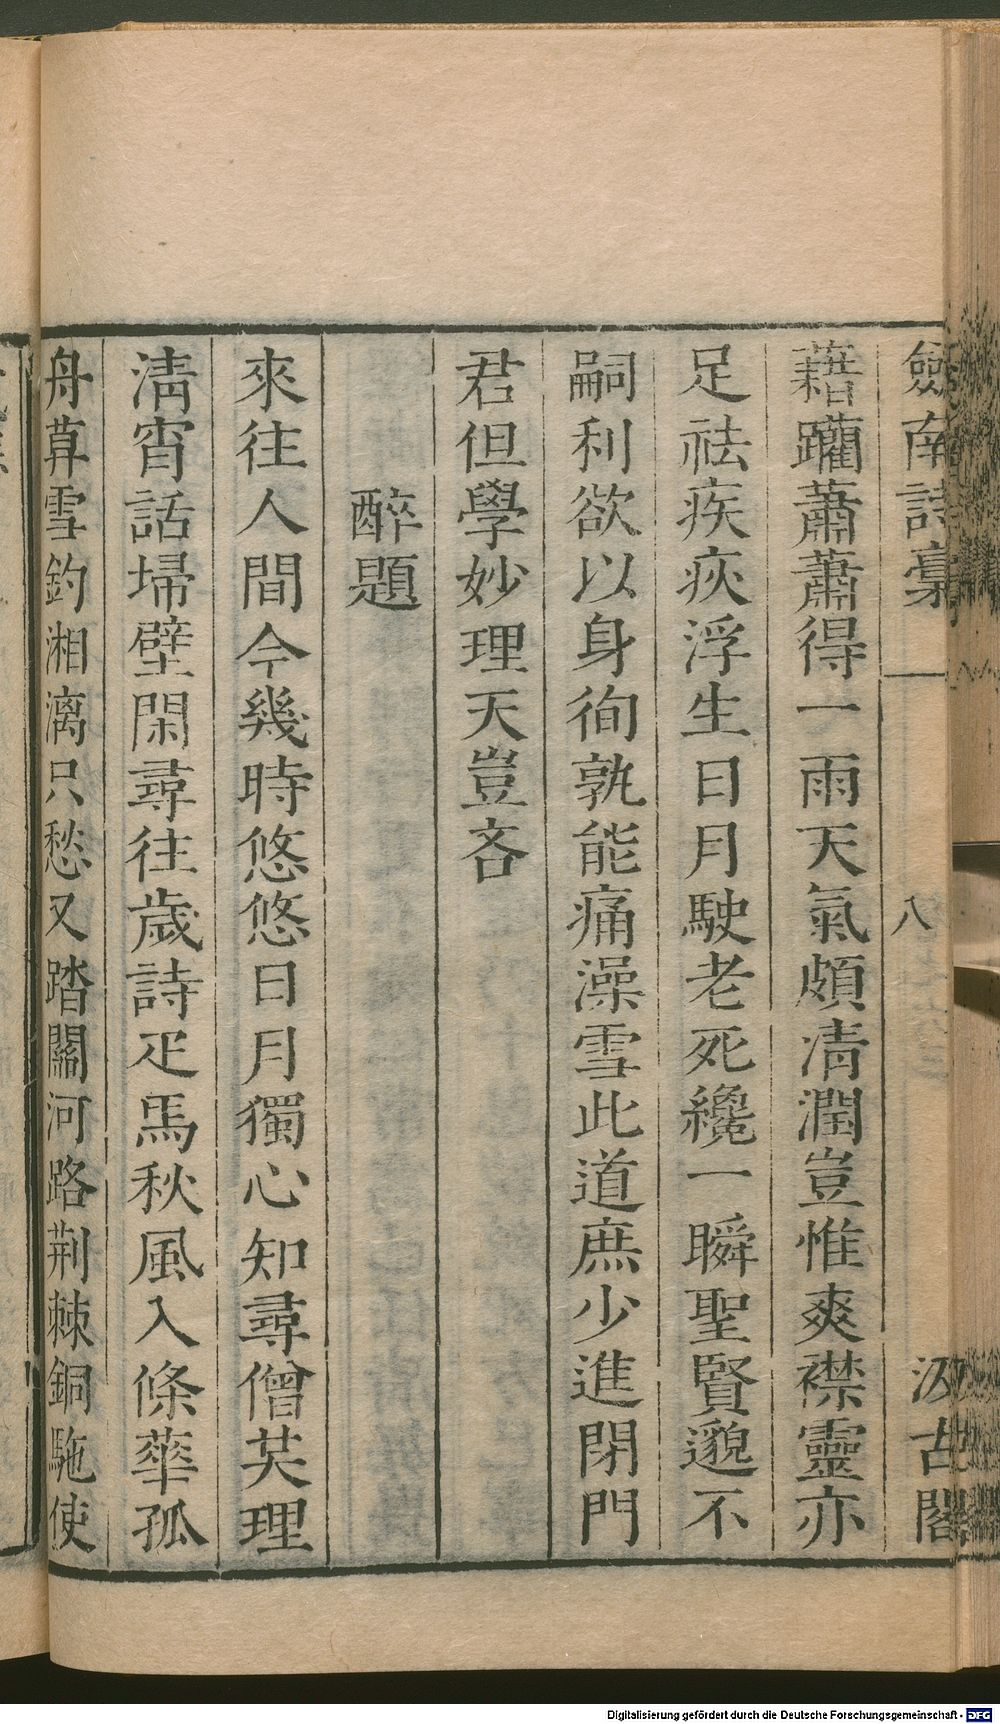 劍南詩稾
八
汲古閣
藉躪蕭蕭得一雨天氣頗淸潤豈惟爽襟靈亦
足祛疾疢浮生日月駛老死纔一瞬聖賢邈不
嗣利欲以身徇孰能痛澡雪此道庶少進閉門
君但學妙理天豈吝
醉題
來往人間今幾時悠悠日月獨心知尋僧芙理
淸宵話埽壁閑尋往歲詩疋馬秋風入條華孤
舟草雪釣湘漓只愁又踏關河路荆棘銅駞使
Digitalisierung gefördert durch die Deutsche Forschungsgemeinschaft - DFG